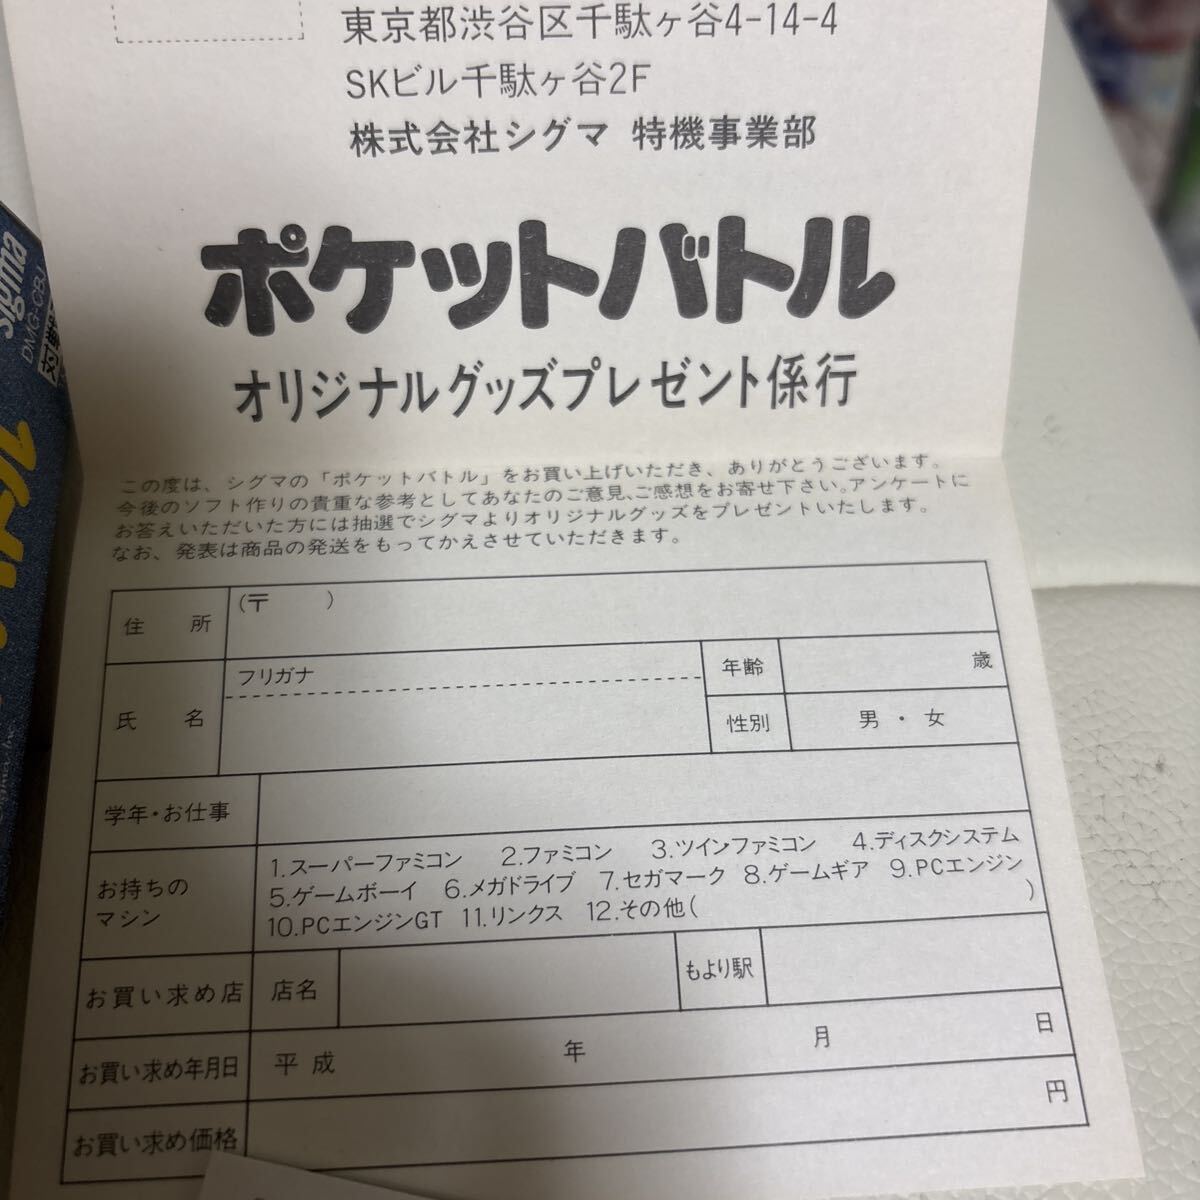 東京都渋谷区千駄ヶ谷4-14-4
SKビル千駄ヶ谷2F
株式会社シグマ 特機事業部
ポケットバトル
オリジナルグッズプレゼント係行
この度は、シグマの「ポケットバトル」をお買い上げいただき、ありがとうございます。
今後のソフト作りの貴重な参考としてあなたのご意見、ご感想をお寄せ下さい。アンケートに
お答えいただいた方には抽選でシグマよりオリジナルグッズをプレゼントいたします。
なお、発表は商品の発送をもってかえさせていただきます。
住 所 (〒 )
氏 名 フリガナ
年齢 歳
性別 男・女
学年・お仕事
お持ちの
マシン
1.スーパーファミコン 2.ファミコン 3.ツインファミコン 4.ディスクシステム
5.ゲームボーイ 6.メガドライブ 7.セガマーク 8.ゲームギア 9.PCエンジン
10.PCエンジンGT 11.リンクス 12.その他( )
お買い求め店 店名 もより駅
お買い求め年月日 平成 年 月 日
お買い求め価格 円
sigma
DMG-CBJ